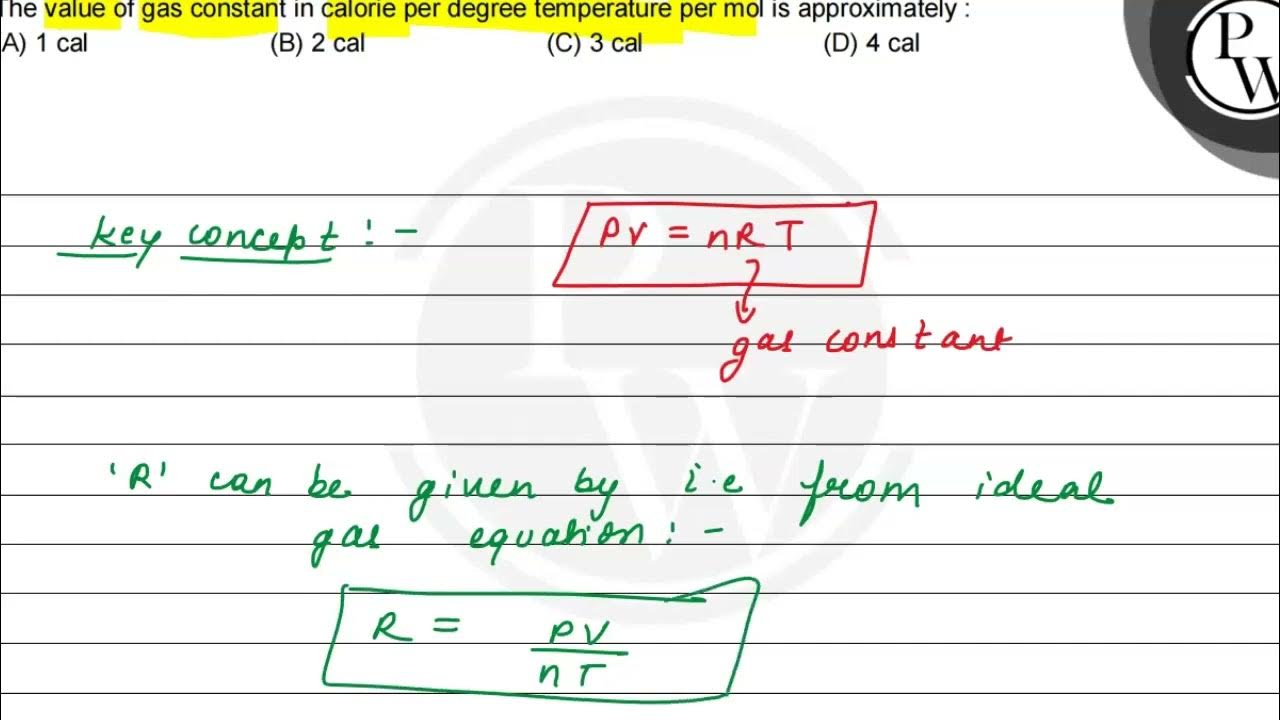 The value of gas constant in calorie per degree temperature per mol is approximately :
A) 1 cal (B) 2 cal (C) 3 cal (D) 4 cal
P
W
key concept : -
PV = nRT
gas constant
'R' can be given by i.e from ideal
gas equation : -
R = PV
nT